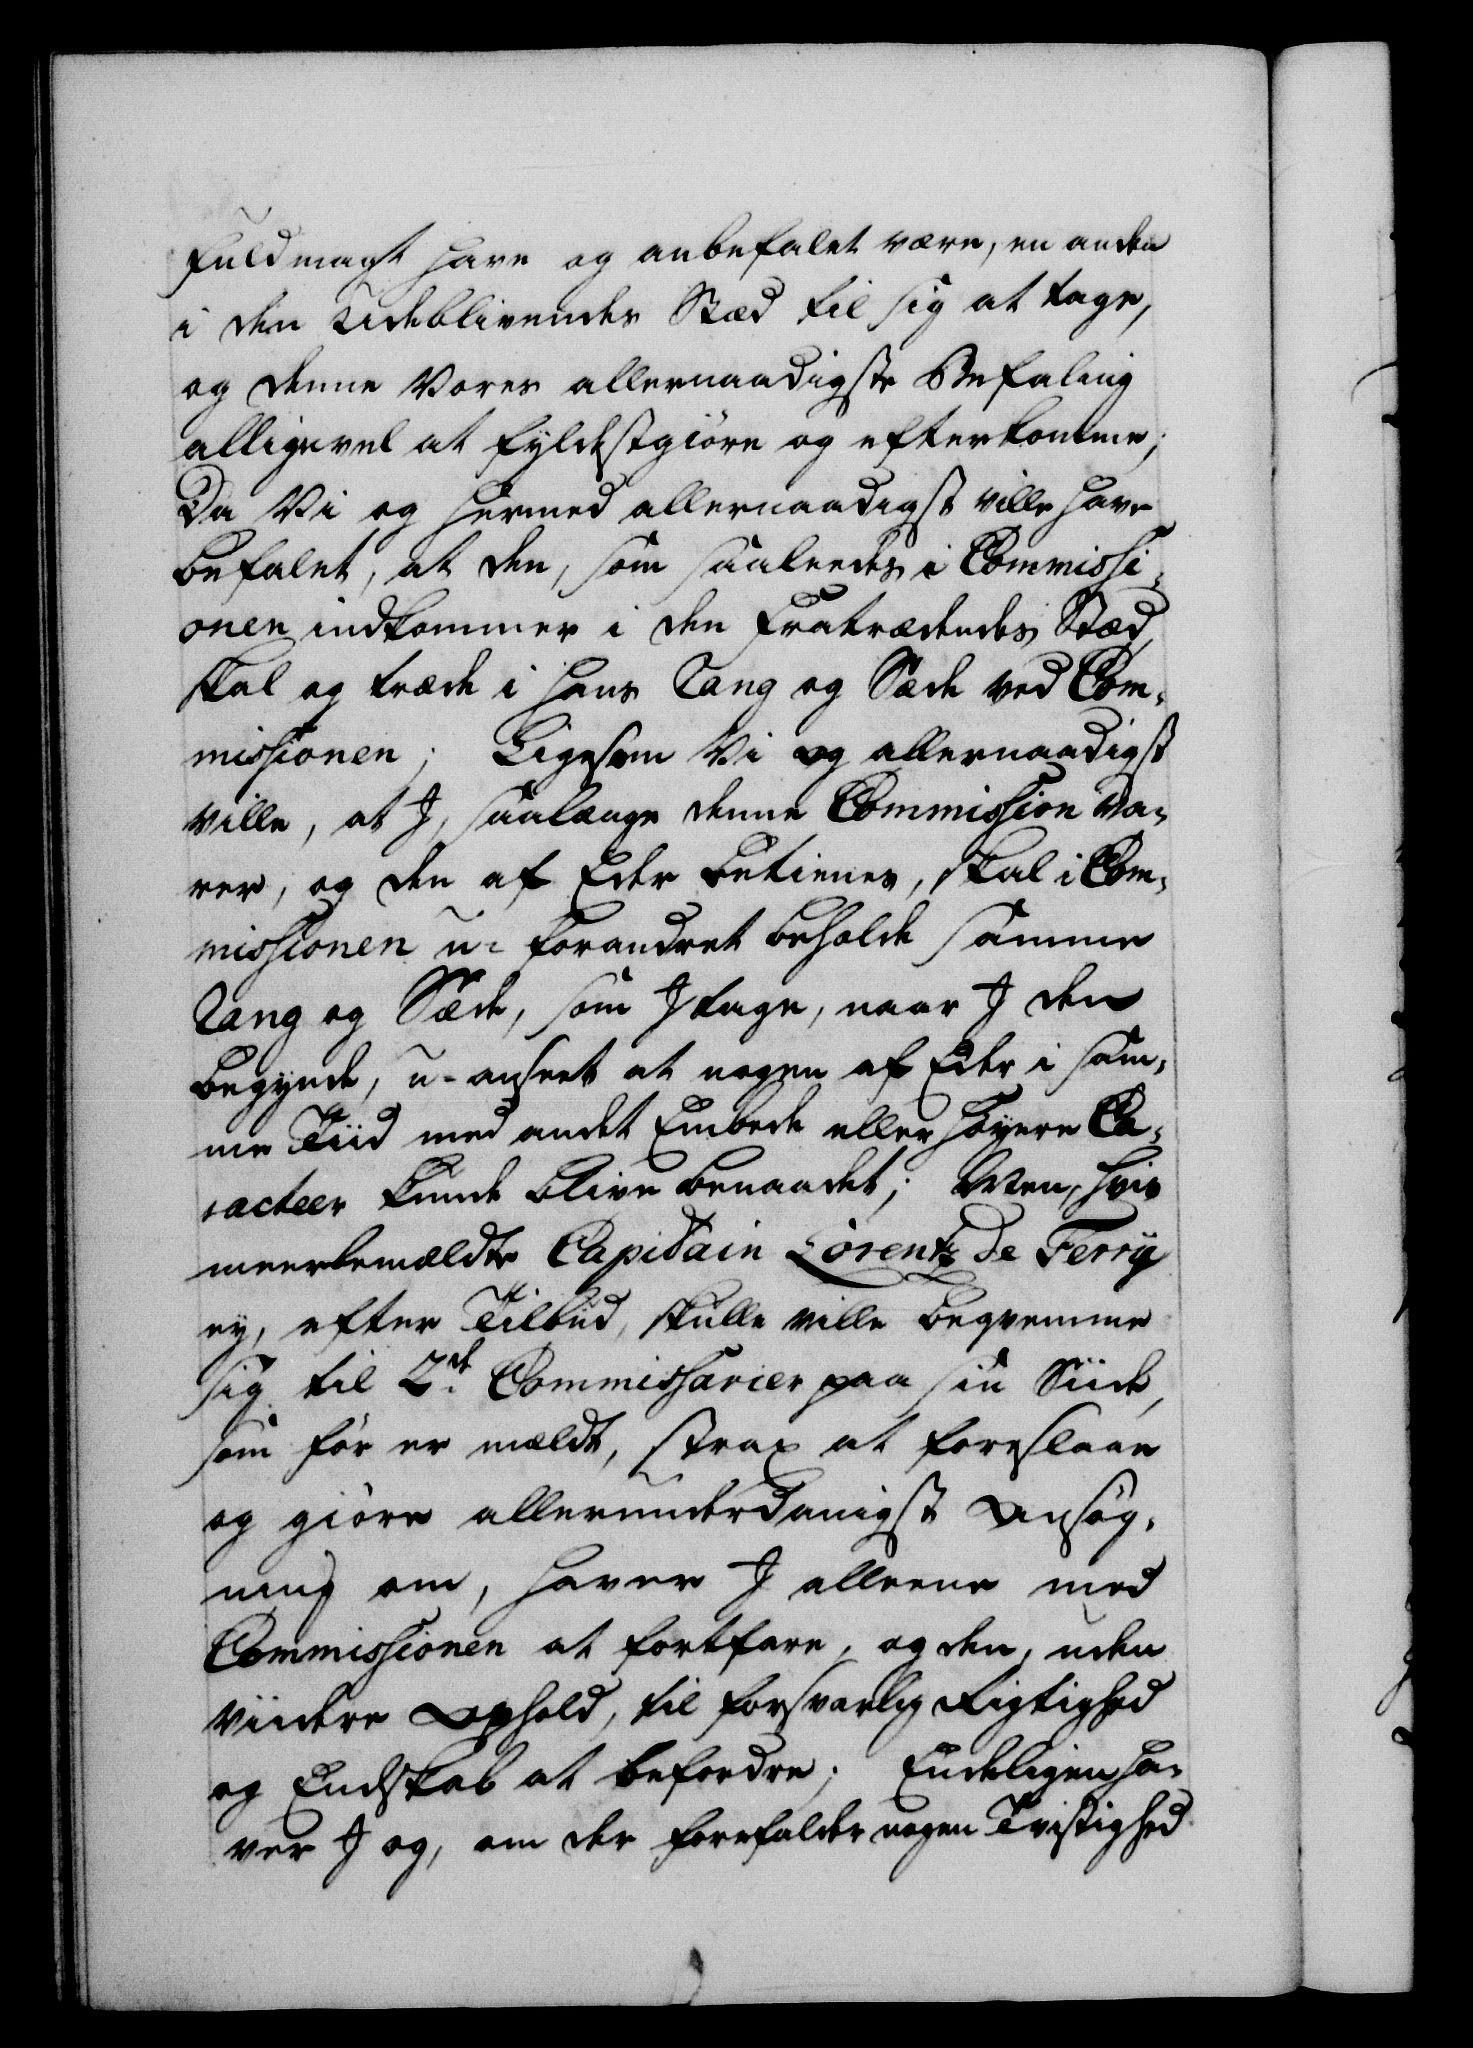 Fuldmagt have og anbefalet være, en anden
i den Udeblivendes Stæd til sig at tage,
og denne Vores allernaadigste Befaling
alligevel at fyldestgiøre og efterkomme;
Da Vi og hermed allernaadigst ville have
befalet, at den, som saaleedes i Commissi-
onen indkommer i den Fratrædendes Stæd,
skal og træde i hans Rang og Sæde ved Com-
missionen; Ligesom Vi og allernaadigst
ville, at I, saalænge denne Commission va-
rer, og den af Eder betienes, skal i Com-
missionen u-forandret beholde samme
Rang og Sæde, som I tage, naar I den
begynde, u-anseet at nogen af Eder i sam-
me Tiid med andet Embede eller høyere Ca-
racteer kunde blive benaadet; Men, hvis
meerbemældte Capidain Lorentz de Ferry
ey, efter Tilbud, skulle ville beqvemme
sig til 2de Commissarier paa sin Siide,
som før er mældt, strax at foreslaae
og giøre allerunderdanigst Ansøg-
ning om, haver I alleene med
Commissionen at fortfare, og den, uden
viidere Ophold, til forsvarlig Rigtighed
og Endskab at befordre; Endeligen ha-
ver I og, om der forefalder nogen Tvistighed